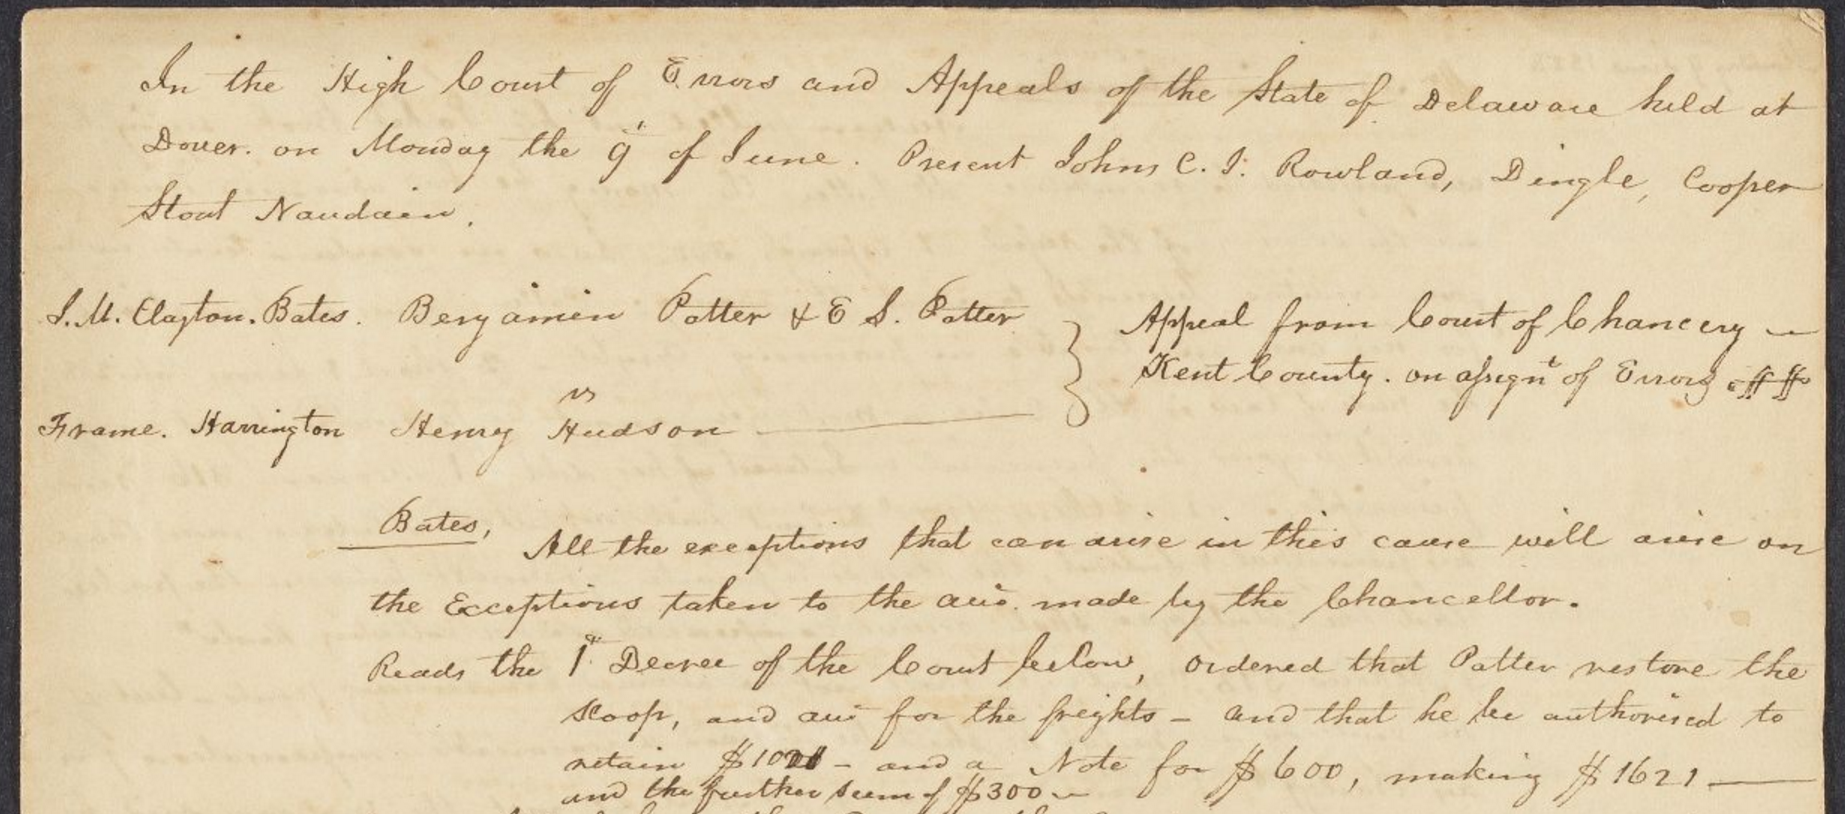 In the High Court of Errors and Appeals of the State of Delaware held at
Dover. on Monday the 9th of June. Present Johns C. J. Rowland, Dingle, Cooper
Stout Naudain.
J. M. Clayton. Bates. Benjamin Potter & E S. Potter
vs
Frame. Harrington Henry Hudson
Appeal from Court of Chancery
Kent County. on assignt of Errors
Bates, All the exceptions that can arise in this cause will arise on
the Exceptions taken to the acc. made by the Chancellor.
Reads the 1st Decree of the Court below, ordered that Potter restore the
Sloop, and acc for the freights - and that he be authorised to
retain $1021 - and a Note for $600, making $1621
and the further sum of $300